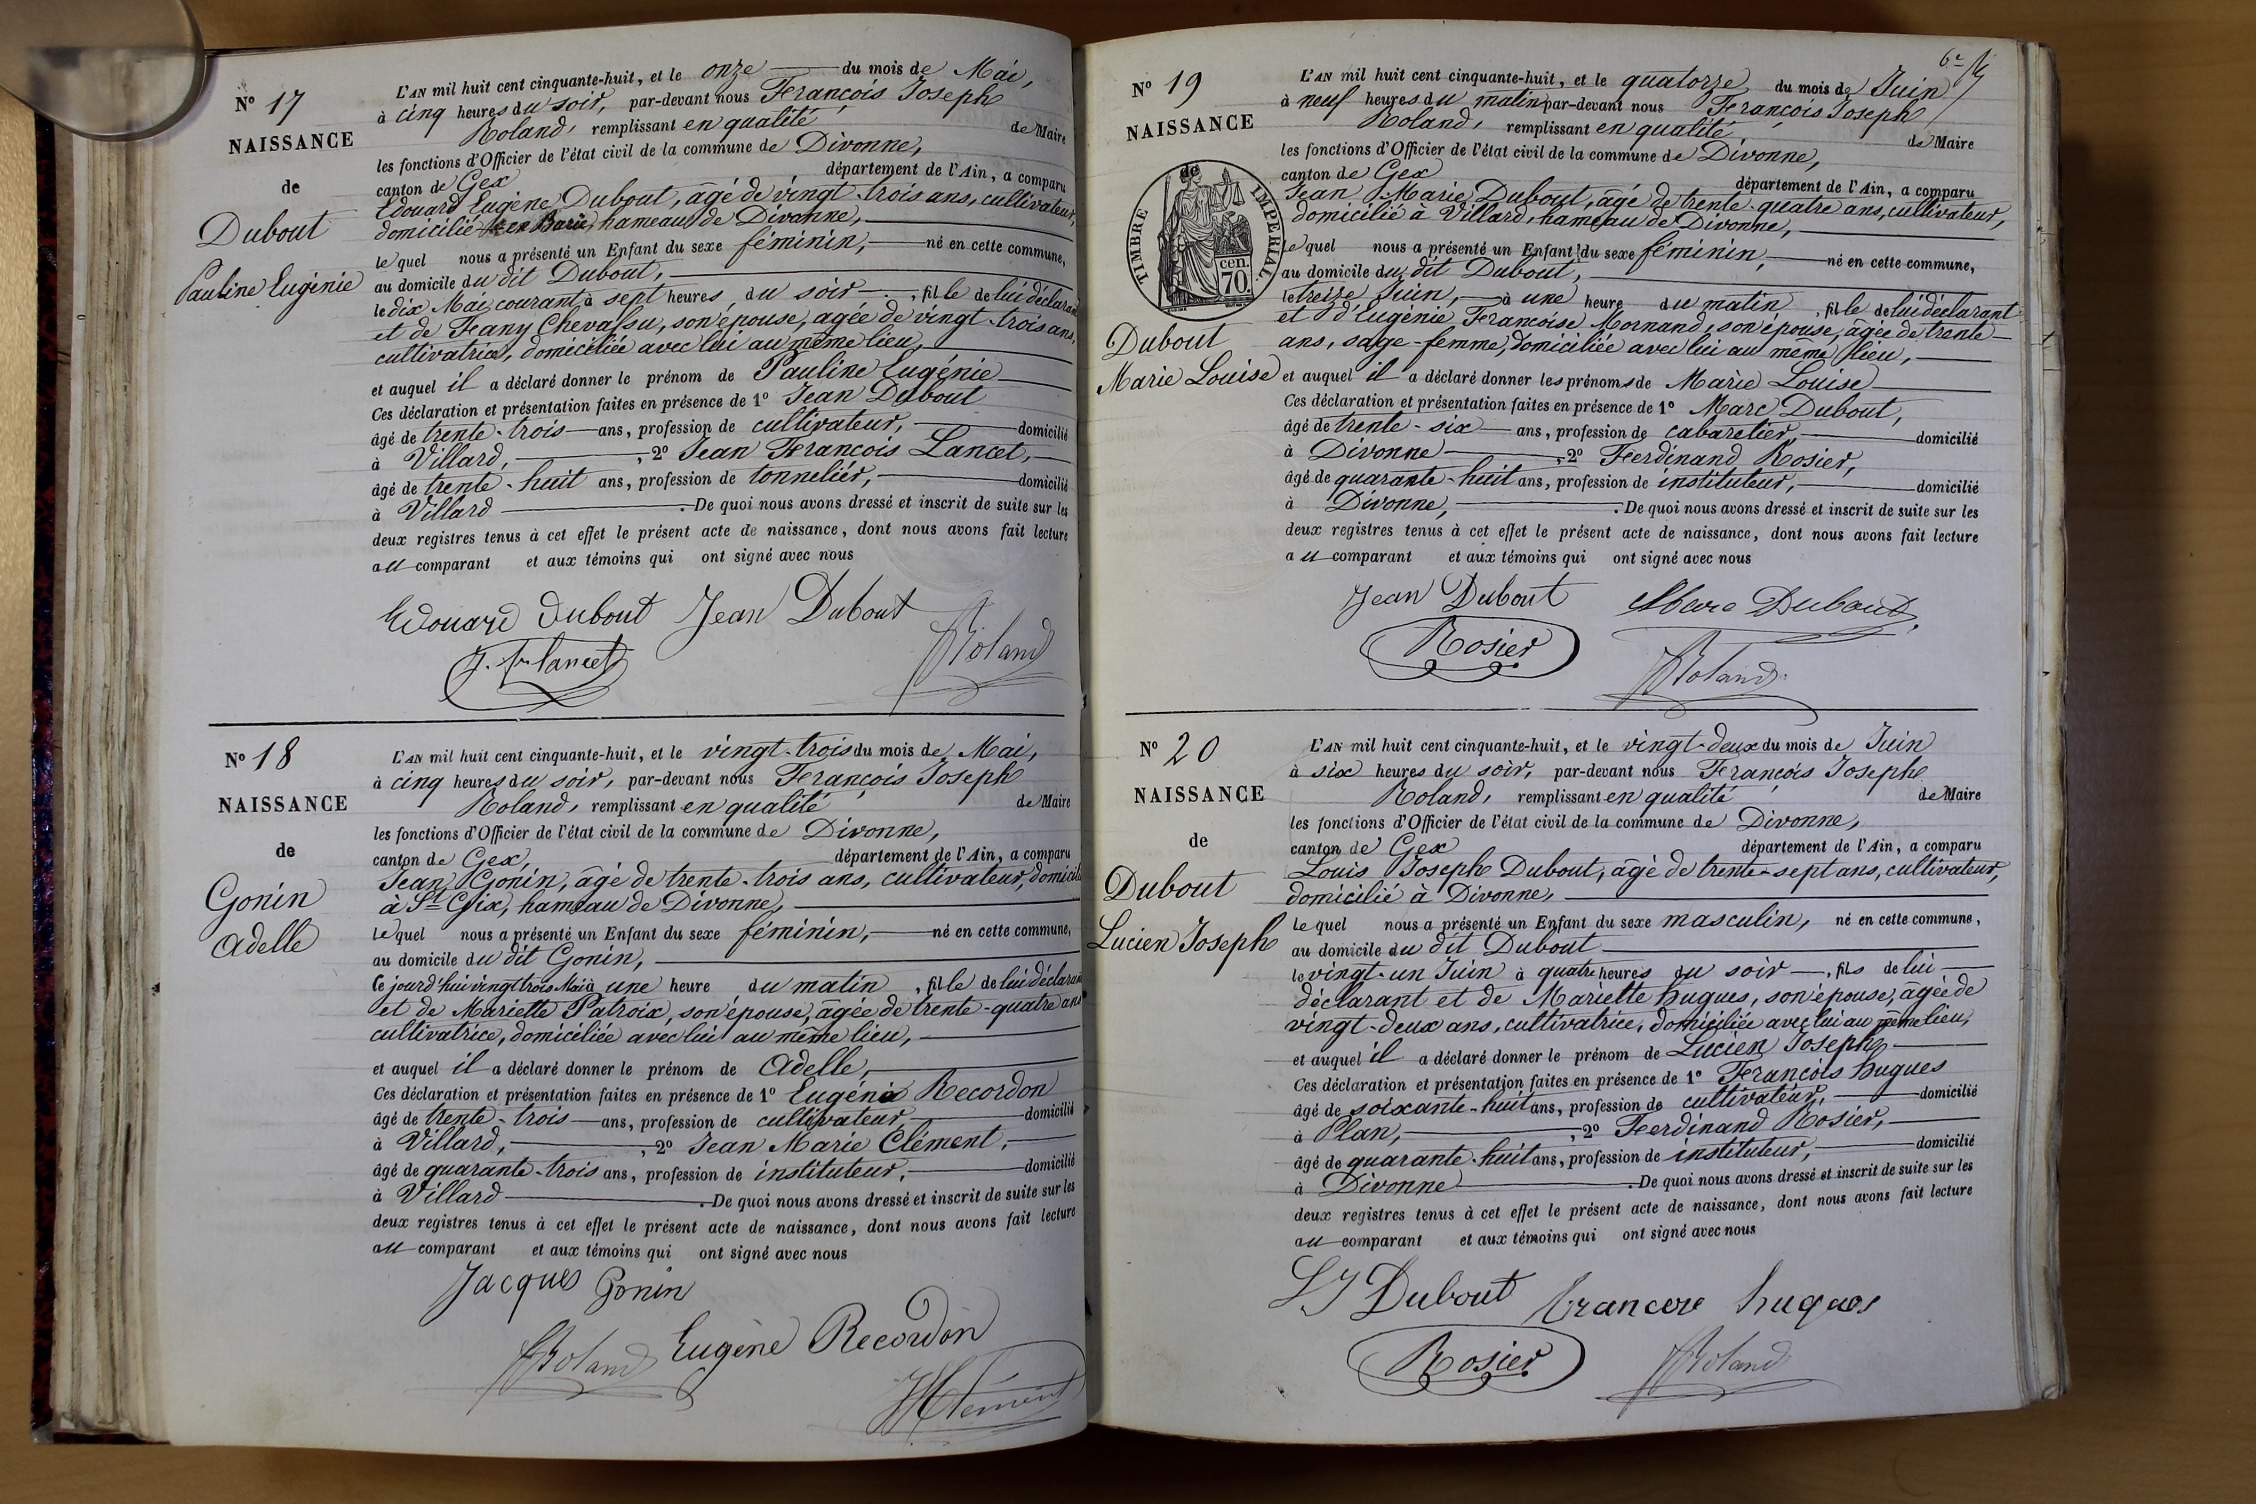 N° 17
NAISSANCE
de
Dubout
Pauline Eugénie
L'AN mil huit cent cinquante-huit, et le onze du mois de Mai,
à cinq heures du soir, par-devant nous François Joseph
Roland, remplissant en qualité de Maire
les fonctions d'Officier de l'état civil de la commune de Divonne,
canton de Gex département de l'Ain, a comparu
Edouard Eugène Dubout, âgé de vingt-trois ans, cultivateur,
domicilié hameau de Divonne,
lequel nous a présenté un Enfant du sexe féminin, né en cette commune,
au domicile du dit Dubout,
le dix Mai courant à sept heures du soir, fille de lui déclarant
et de Fany Chevassu, son épouse, agée de vingt-trois ans,
cultivatrice, domiciliée avec lui au même lieu,
et auquel il a déclaré donner le prénom de Pauline Eugénie
Ces déclaration et présentation faites en présence de 1° Jean Dubout
âgé de trente-trois ans, profession de cultivateur, domicilié
à Villard, , 2° Jean François Lancet,
âgé de trente-huit ans, profession de tonnelier, domicilié
à Villard . De quoi nous avons dressé et inscrit de suite sur les
deux registres tenus à cet effet le présent acte de naissance, dont nous avons fait lecture
au comparant et aux témoins qui ont signé avec nous
Edouard Dubout Jean Dubout
J. fr lancet Roland
N° 18
NAISSANCE
de
Gonin
Adelle
L'AN mil huit cent cinquante-huit, et le vingt-trois du mois de Mai,
à cinq heures du soir, par-devant nous François Joseph
Roland, remplissant en qualité de Maire
les fonctions d'Officier de l'état civil de la commune de Divonne,
canton de Gex, département de l'Ain, a comparu
Jean Gonin, âgé de trente-trois ans, cultivateur, domicilié
à St Gix, hameau de Divonne,
lequel nous a présenté un Enfant du sexe féminin, né en cette commune,
au domicile du dit Gonin,
Ce jourd'hui vingt trois Mai à une heure du matin, fille de lui déclarant
et de Mariette Patroix, son épouse, âgée de trente-quatre ans
cultivatrice, domiciliée avec lui au même lieu,
et auquel il a déclaré donner le prénom de Adelle,
Ces déclaration et présentation faites en présence de 1° Eugène Recordon
âgé de trente-trois ans, profession de cultivateur, domicilié
à Villard, , 2° Jean Marie Clément,
âgé de quarante-trois ans, profession de instituteur, domicilié
à Villard . De quoi nous avons dressé et inscrit de suite sur les
deux registres tenus à cet effet le présent acte de naissance, dont nous avons fait lecture
au comparant et aux témoins qui ont signé avec nous
Jacques Gonin
Roland Eugène Recordon
Clément
6e
N° 19
NAISSANCE
de
TIMBRE IMPERIAL
70 cen.
Dubout
Marie Louise
L'AN mil huit cent cinquante-huit, et le quatorze du mois de Juin
à neuf heures du matin par-devant nous François Joseph
Roland, remplissant en qualité de Maire
les fonctions d'Officier de l'état civil de la commune de Divonne,
canton de Gex département de l'Ain, a comparu
Jean Marie Dubout, âgé de trente-quatre ans, cultivateur,
domicilié à Villard, hameau de Divonne,
lequel nous a présenté un Enfant du sexe féminin, né en cette commune,
au domicile du dit Dubout,
le treize Juin, à une heure du matin, fille de lui déclarant
et d'Eugénie Françoise Mornand, son épouse, âgée de trente
ans, sage-femme, domiciliée avec lui au même lieu,
et auquel il a déclaré donner les prénoms de Marie Louise
Ces déclaration et présentation faites en présence de 1° Marc Dubout,
âgé de trente-six ans, profession de cabaretier, domicilié
à Divonne , 2° Ferdinand Rosier,
âgé de quarante-huit ans, profession de instituteur, domicilié
à Divonne, . De quoi nous avons dressé et inscrit de suite sur les
deux registres tenus à cet effet le présent acte de naissance, dont nous avons fait lecture
au comparant et aux témoins qui ont signé avec nous
Jean Dubout Marc Dubout
Rosier Roland
N° 20
NAISSANCE
de
Dubout
Lucien Joseph
L'AN mil huit cent cinquante-huit, et le vingt-deux du mois de Juin
à six heures du soir, par-devant nous François Joseph
Roland, remplissant en qualité de Maire
les fonctions d'Officier de l'état civil de la commune de Divonne,
canton de Gex département de l'Ain, a comparu
Louis Joseph Dubout, âgé de trente-sept ans, cultivateur,
domicilié à Divonne,
lequel nous a présenté un Enfant du sexe masculin, né en cette commune,
au domicile du dit Dubout
le vingt-un Juin à quatre heures du soir, fils de lui
déclarant et de Mariette hugues, son épouse, âgée de
vingt-deux ans, cultivatrice, domiciliée avec lui au même lieu,
et auquel il a déclaré donner le prénom de Lucien Joseph
Ces déclaration et présentation faites en présence de 1° François hugues
âgé de soixante-huit ans, profession de cultivateur, domicilié
à Plan, , 2° Ferdinand Rosier,
âgé de quarante-huit ans, profession de instituteur, domicilié
à Divonne . De quoi nous avons dressé et inscrit de suite sur les
deux registres tenus à cet effet le présent acte de naissance, dont nous avons fait lecture
au comparant et aux témoins qui ont signé avec nous
LJ Dubout hugues
Rosier Roland